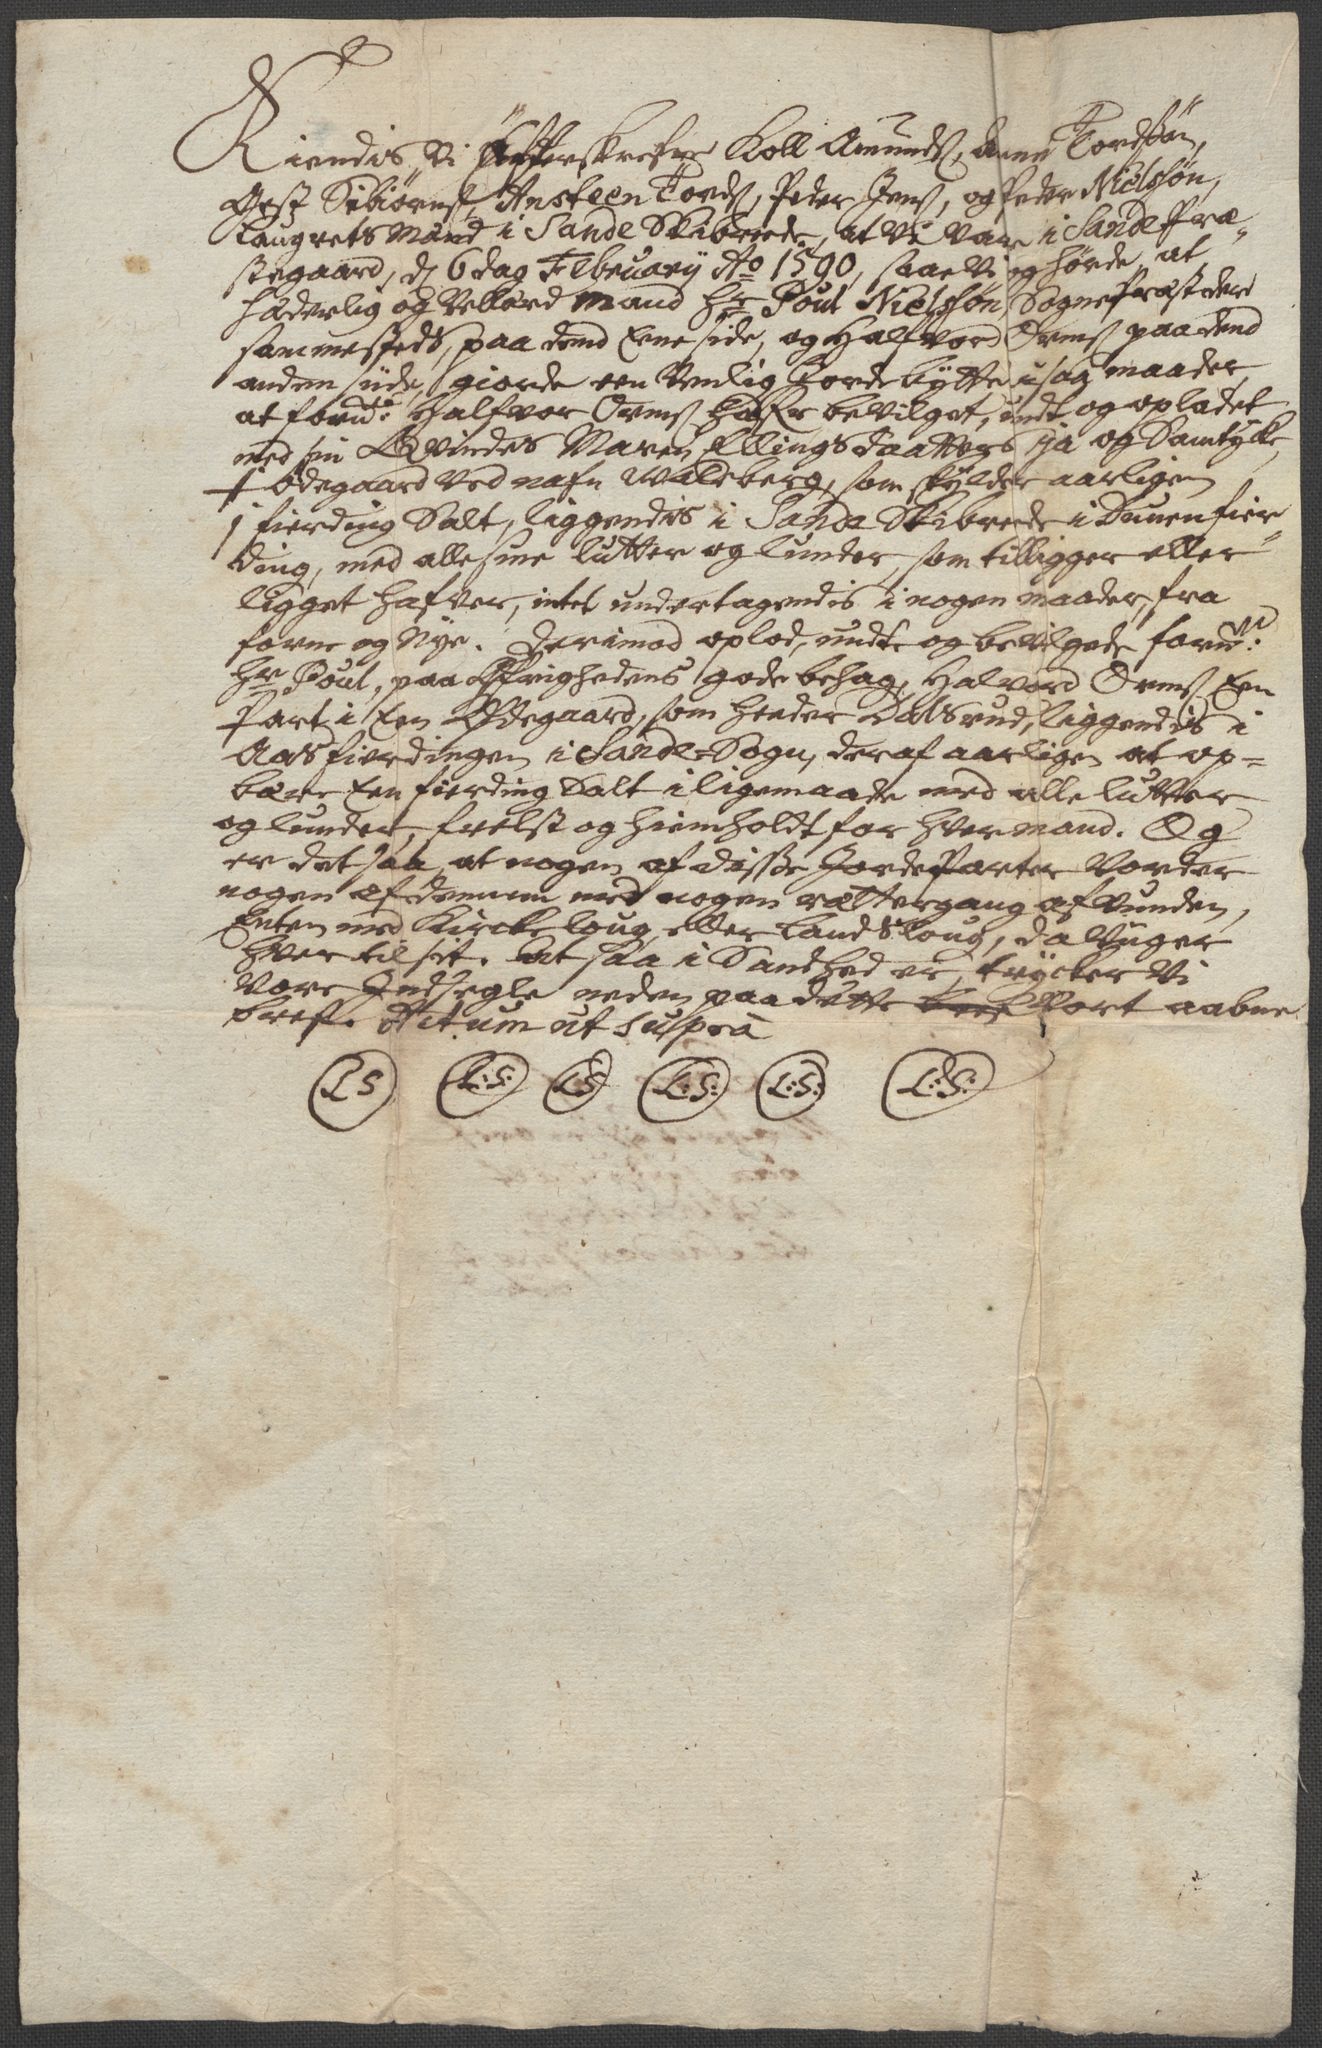 Kiendis Vi Efterskrefne Koll Amunds, Anne Tordsøn,
Gest Sibiørns, Ansteen Tords, Peder Jens, og Peder Nielssøn,
Laugrets Mænd i Sande Skibrede, at Vi Vare i Sande Præ-
stegaard, d 6 dag Februarij Ao 1590, saae Vi og hørde, at
hæderlig og Vellærd Mand Hr Poul Nielssøn, Sognepræst der
sammesteds, paa dend Eene side, og Halfvord Orms paa dend
anden side, giorde een Venlig Jordebytte i saa maader,
at forne: Halfvor Orms hafr bevilget, undt og opladet
med sin Qvindes Maren Ellingsdaatters ja og Samtycke,
j ødegaard Ved nafn Waldeberg, som skylder aarligen
j fierding Salt, liggendis i Sande Skibrede i Duuenfier-
ding, med alle sine lutter og lunder, som tilligger eller
ligget hafver, intet undertagendis i nogen maader, fra
forne og Nye. Derimod oplod, undte og bevilgede forne:
Hr Poul, paa Øfrighedens gode behag, Halvord Orms Een
Part i Een Ødegaard, som heeder Dalsrud, liggendis i
Aasfierdingen i Sande-Sogn, deraf aarligen at op-
bære Een fierding Salt i ligemaade med alle lutter
og lunder, frelst og hiemholdt for hver mand. Og
er det saa, at nogen af disse Jordeparter Vorder
nogen af dennem med nogen rættergang afvunden,
Enten med Kircke loug eller Landsloug, da Vuger
hver til sit. At saa i Sandhed er, trycker Vi
Vore Indsegle neden paa dette Vort aabne
bref. Actum ut supra
LS L:S: LS L:S: L:S: L:S: